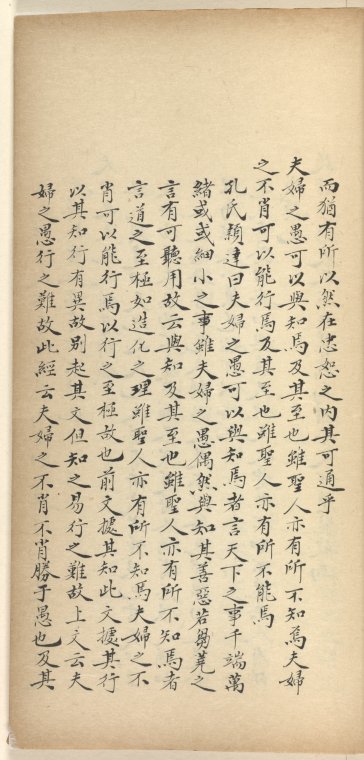 而猶有所以然在忠恕之内其可通乎
夫婦之愚可以與知焉及其至也雖聖人亦有所不知焉夫婦
之不肖可以能行焉及其至也雖聖人亦有所不能焉
孔氏穎達曰夫婦之愚可以與知焉者言天下之事千端萬
緒或或細小之事雖夫婦之愚偶然與知其善惡若芻蕘之
言有可聽用故云與知及其至也雖聖人亦有所不知焉者
言道之至極如造化之理雖聖人亦有所不知焉夫婦之不
肖可以能行焉以行之至極故也前文據其知此文據其行
以其知行有異故别起其文但知之易行之難故上文云夫
婦之愚行之難故此經云夫婦之不肖不肖勝于愚也及其